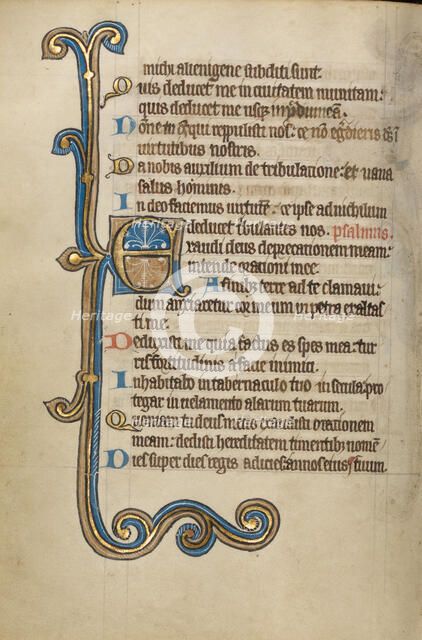 michi alienigene subditi sunt.
Quis deducet me in civitatem munitam:
quis deducet me usqz in ydumeã.
Nõne tu qui reppulisti nos: et nõ egdieris
virtutibus nostris.
Da nobis auxilium de tribulatione: et vana
salus hominis.
In deo faciemus virtutẽ: et ipse ad nichilum
deducet tbulantes nos. psalmus.
Exaudi deus deprecationem meam:
intende orationi mee.
A finibz terre ad te clamavi:
dum anxiaretur cor meum in petra exaltas
ti me.
Deduxisti me quia factus es spes mea: tur
ris fortitudinis a facie inimici.
Inhabitabo in tabernaculo tuo in secula: pro
tegar in velamento alarum tuarum.
Quoniam tu deus meus exaudisti orationem
meam: dedisti hereditatem timentibz nomẽ
Dies super dies regis adicies: annos eius tuum.
Heritage
Heritage
Heritage
Heritage